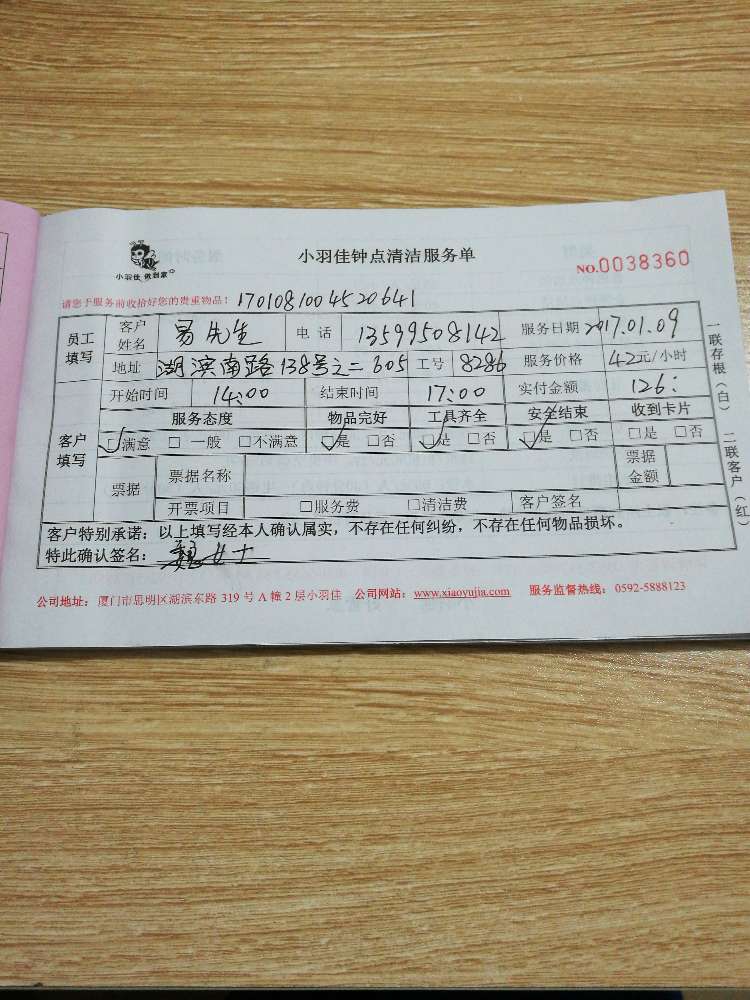 小羽佳 做到家
小羽佳钟点清洁服务单
NO.0038360
请您于服务前收拾好您的贵重物品! 1701081004520641
员工填写 客户姓名 易先生 电话 13599508142 服务日期 2017.01.09
地址 湖滨南路138号之二605 工号 8286 服务价格 42元/小时
客户填写 开始时间 14:00 结束时间 17:00 实付金额 126:
服务态度 物品完好 工具齐全 安全结束 收到卡片
☑满意 □一般 □不满意 ☑是 □否 ☑是 □否 ☑是 □否 □是 □否
票据 票据名称 票据金额
开票项目 □服务费 □清洁费 客户签名
客户特别承诺:以上填写经本人确认属实,不存在任何纠纷,不存在任何物品损坏。
特此确认签名: 魏女士
一联存根(白) 二联客户(红)
公司地址:厦门市思明区湖滨东路 319 号 A 幢 2 层小羽佳 公司网站:www.xiaoyujia.com 服务监督热线:0592-5888123